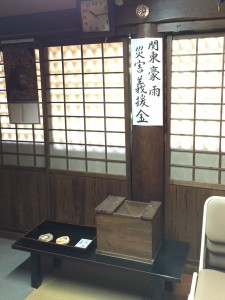 関東豪雨
災害義援金